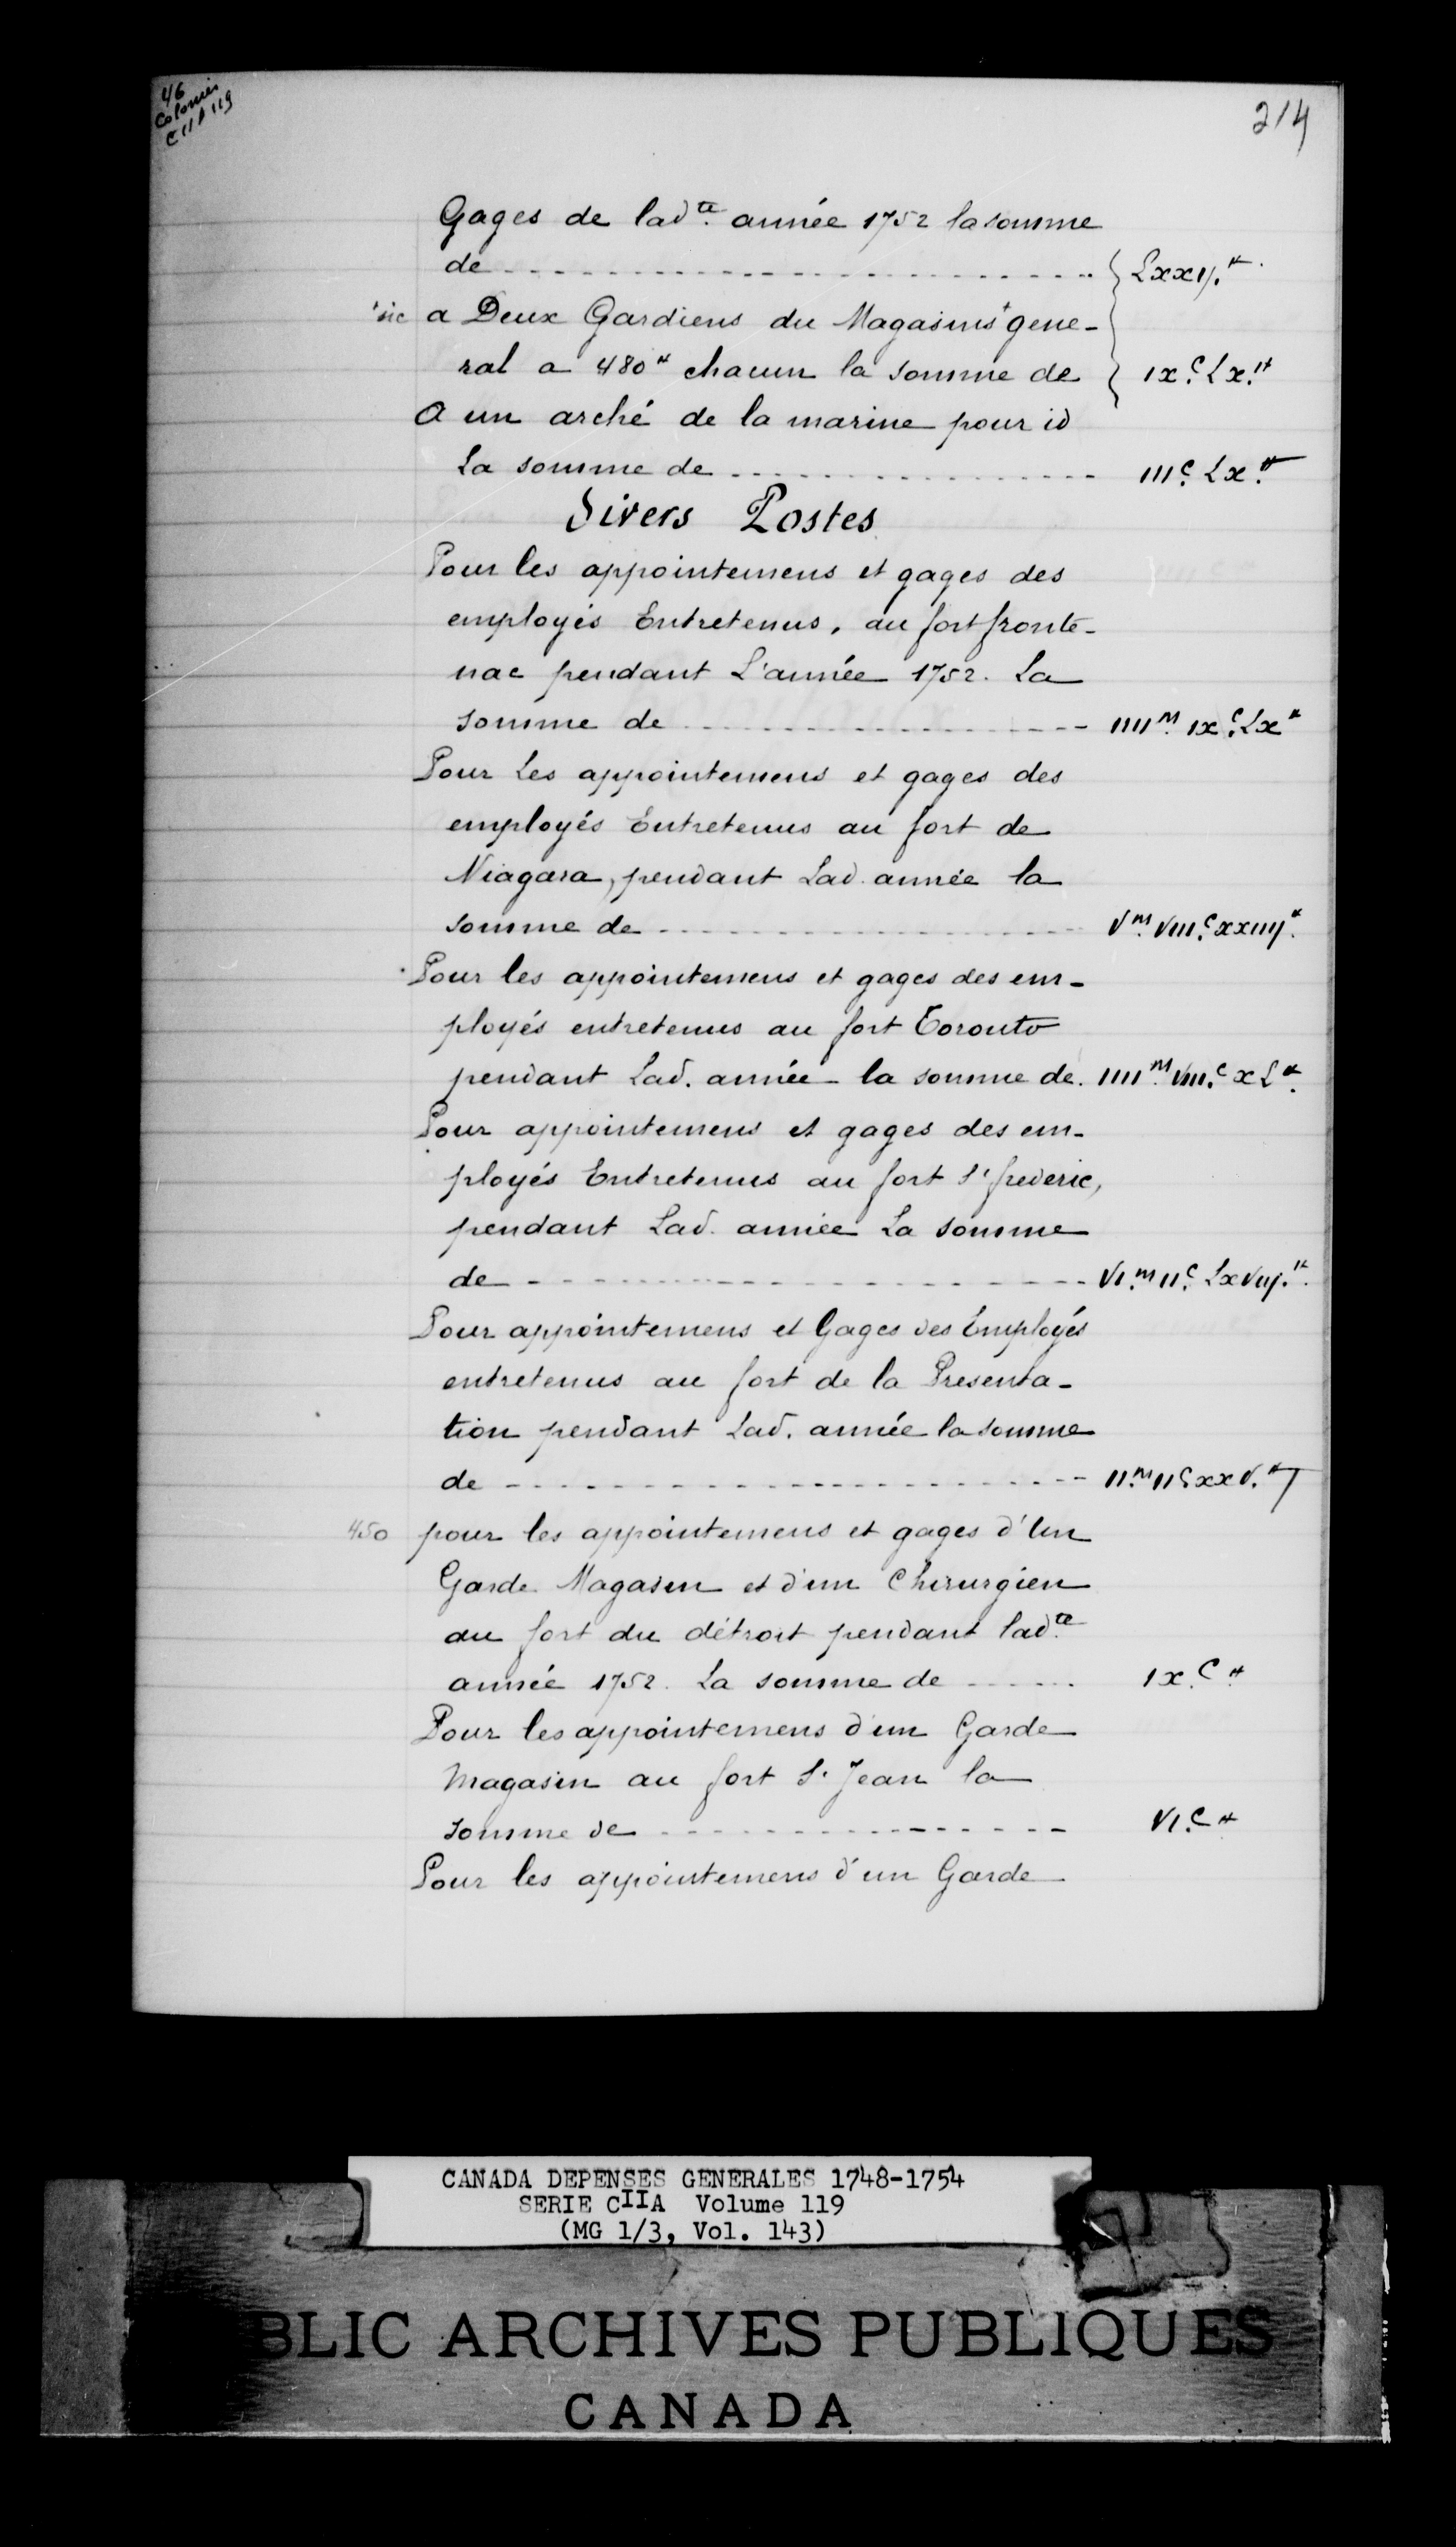 46
Colonies
C11A 119
214
Gages de lad.te année 1752 la somme
de - - - - - - - - - - - - - - - - { Lxxij.#
+sic a Deux Gardiens du Magasins+ gene-
ral a 480# chacun la somme de { ix.c Lx.#
a un arché de la marine pour id
La somme de - - - - - - - - - - - - iii.c Lx.#
Divers Postes
Pour les appointemens et gages des
employés Entretenus, au fort fronte-
nac pendant L'année 1752. La
somme de - - - - - - - - - - - - iiii.m ix.c Lx#
Pour Les appointemens et gages des
employés Entretenus au fort de
Niagara, pendant Lad. année la
somme de - - - - - - - - - - - - v.m viii.c xxiiij.#
Pour les appointemens et gages des em-
ployés entretenus au fort Toronto
pendant Lad. année la somme de. iiii.m viii.c xL#.
Pour appointemens et gages des em-
ployés Entretenus au fort St frederic,
pendant Lad. année La somme
de - - - - - - - - - - - - - - - - vi.m ii.c Lxviij.#
Pour appointemens et Gages des Employés
entretenus au fort de la Presenta-
tion pendant Lad. année la somme
de - - - - - - - - - - - - - - - - ii.m ii.c xxv.#
450 pour les appointemens et gages d'Un
Garde Magasin et d'un Chirurgien
au fort du détroit pendant lad.te
année 1752. La somme de - - - - - ix.c #
Pour les appointemens d'un Garde
Magasin au fort St Jean la
somme de - - - - - - - - - - - - vi.c #
Pour les appointemens d'un Garde
CANADA DEPENSES GENERALES 1748-1754
SERIE CIIA Volume 119
(MG 1/3, Vol. 143)
BLIC ARCHIVES PUBLIQUES
CANADA